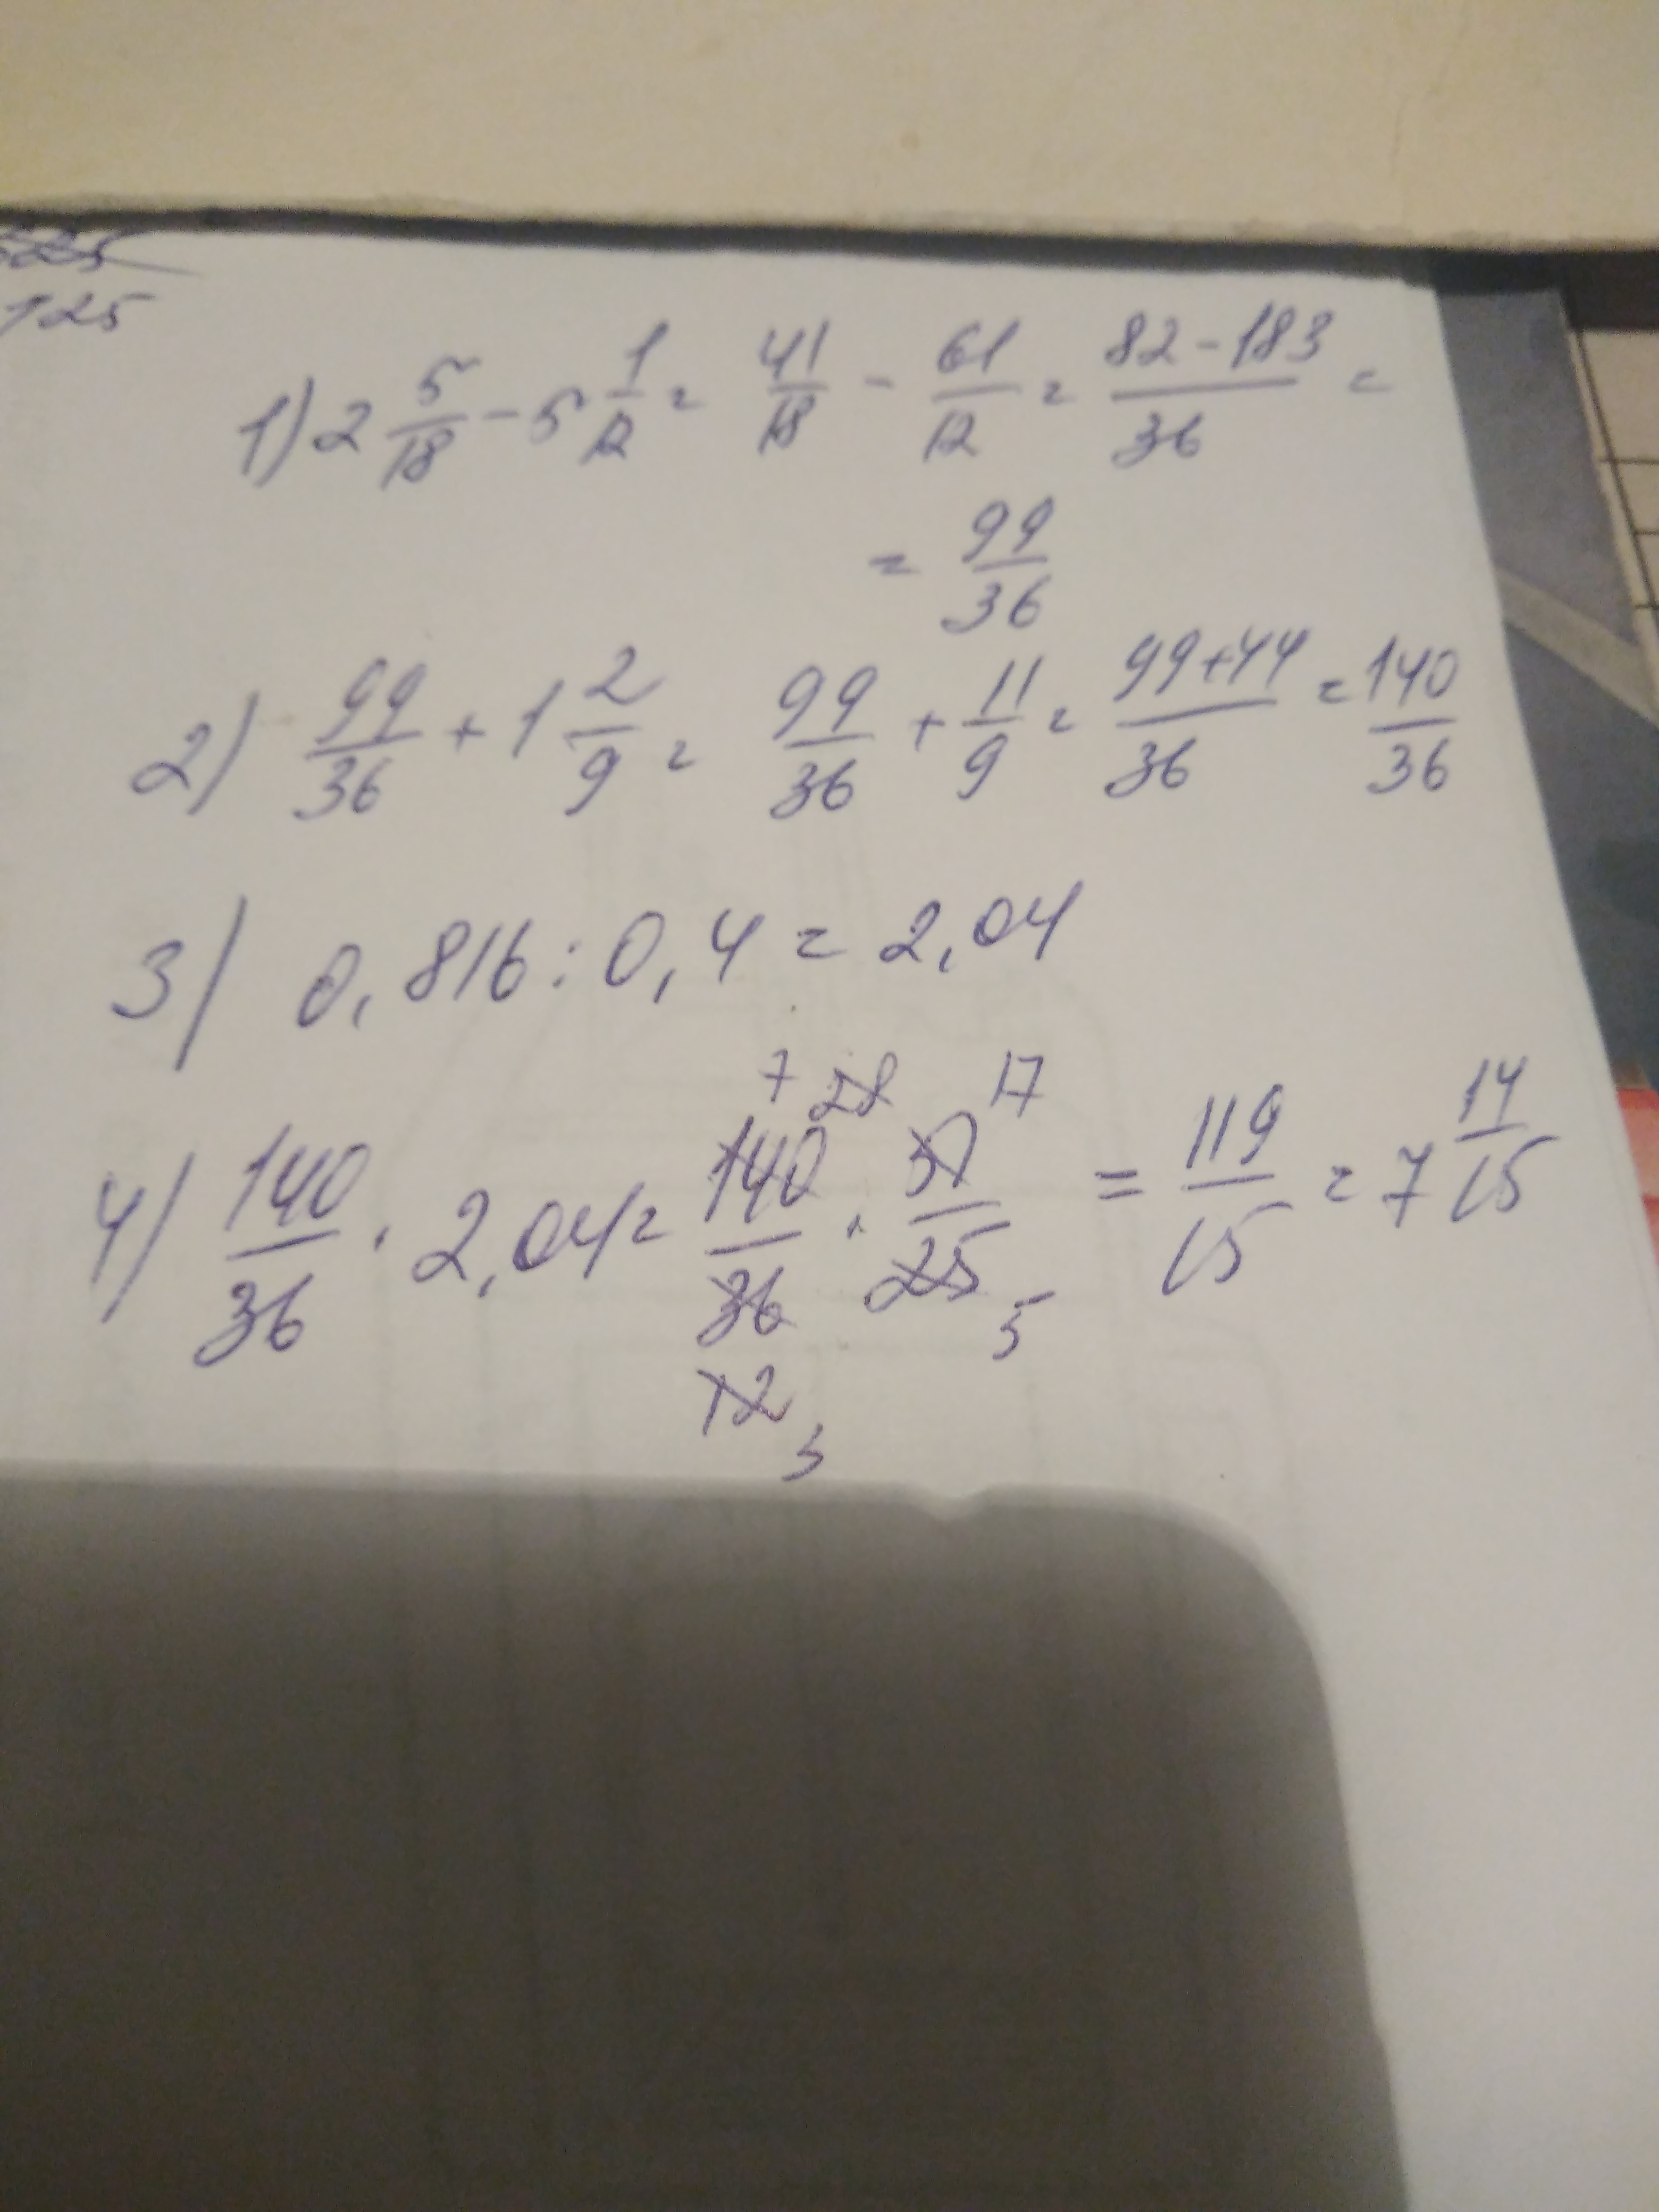 125
1) 2 5/18 - 5 1/12 = 41/18 - 61/12 = 82-183/36 =
= 99/36
2) 99/36 + 1 2/9 = 99/36 + 11/9 = 99+44/36 = 140/36
3) 0,816 : 0,4 = 2,04
7 28 17
4) 140/36 · 2,04 = 140/36 · 51/25 = 119/15 = 7 14/15
5
12 3